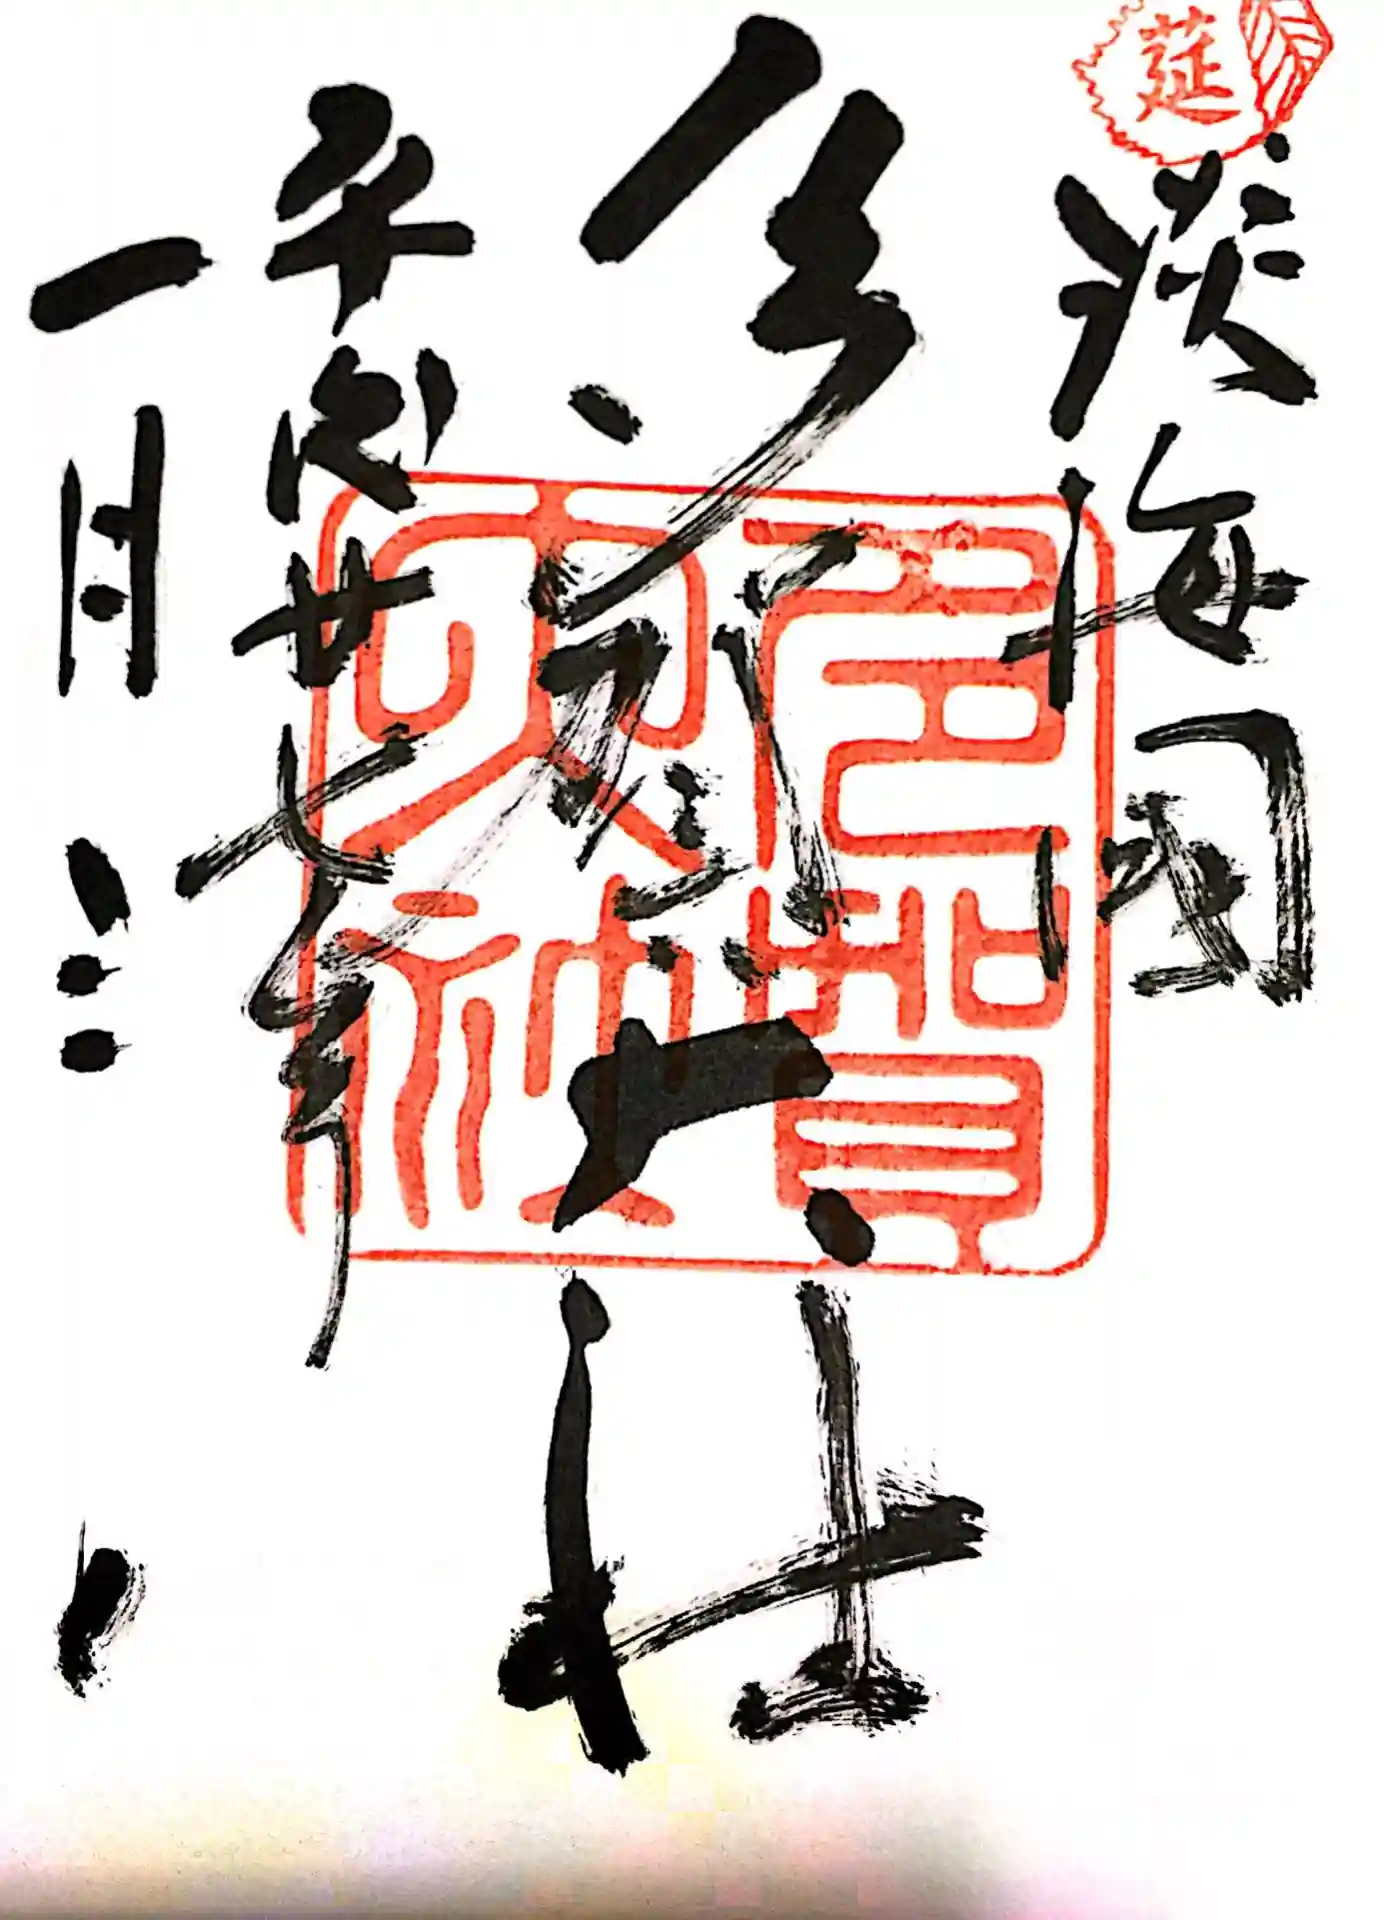 莚
淡海国
多賀大社
多賀大社
平成廿七年
一月三日